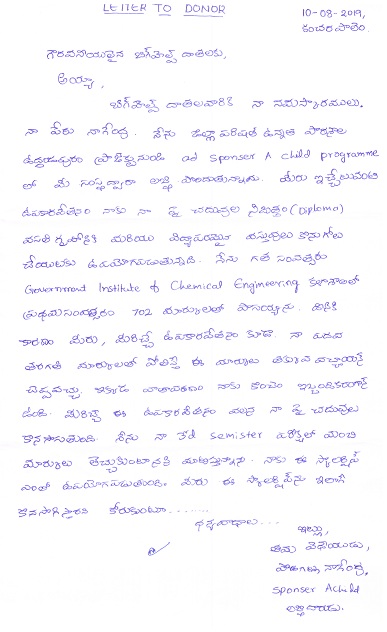 LETTER TO DONOR
10-08-2019,
కంచరపాలెం.
గౌరవనీయులైన బిగ్‌హెల్ప్ దాతలకు,
అయ్యా,
బిగ్‌హెల్ప్ దాతలవారికి నా నమస్కారములు.
నా పేరు నాగేంద్ర. నేను జిల్లా పరిషత్ ఉన్నత పాఠశాల
నుండి ad sponser A child programme
లో మీ సంస్థద్వారా లబ్ధి పొందుతున్నాను. మీరు ఇచ్చేటువంటి
ఉపకారవేతనం నాకు నా పై చదువుల నిమిత్తం (Diploma)
వసతి గృహానికి మరియు విద్యాపరమైన వస్తువులు కొనుగోలు
చేయుటకు ఉపయోగపడుతున్నది. నేను గత సంవత్సరం
Government Institute of Chemical Engineering కళాశాలలో
ప్రథమసంవత్సరం 702 మార్కులతో పాసయ్యాను. దీనికి
కారణం మీరు, మీరిచ్చే ఉపకారవేతనం కూడా. నా పదవ
తరగతి మార్కులతో పోలిస్తే ఈ మార్కులు తక్కువ వచ్చాయనే
చెప్పవచ్చు. ఇక్కడ వాతావరణం నాకు కొంచెం ఇబ్బందికరంగానే
ఉంది. మీరిచ్చే ఈ ఉపకారవేతనం వలన నా పై చదువులు
కొనసాగుతుంది. నేను నా 3rd semister పరీక్షలో మంచి
మార్కులు తెచ్చుకుంటానని మాటిస్తున్నాను. నాకు ఈ స్కాలర్షిప్
ఎంతో ఉపయోగపడుతుంది. మీరు ఈ స్కాలర్షిప్‌ను ఇలానే
కొనసాగిస్తారని కోరుకుంటూ.......
ధన్యవాదాలు...
ఇట్లు,
తమ విధేయుడు,
నాగేంద్ర,
sponser A child
లబ్ధిదారుడు.